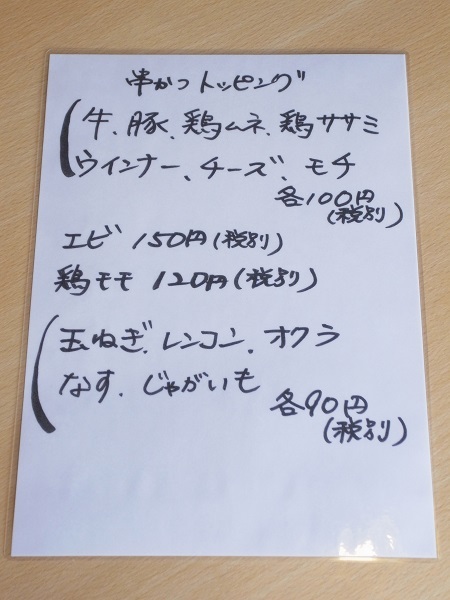 串かつトッピング
牛、豚、鶏ムネ、鶏ササミ
ウインナー、チーズ、モチ
各100円
(税別)
エビ 150円(税別)
鶏モモ 120円(税別)
玉ねぎ、レンコン、オクラ
なす、じゃがいも
各90円
(税別)